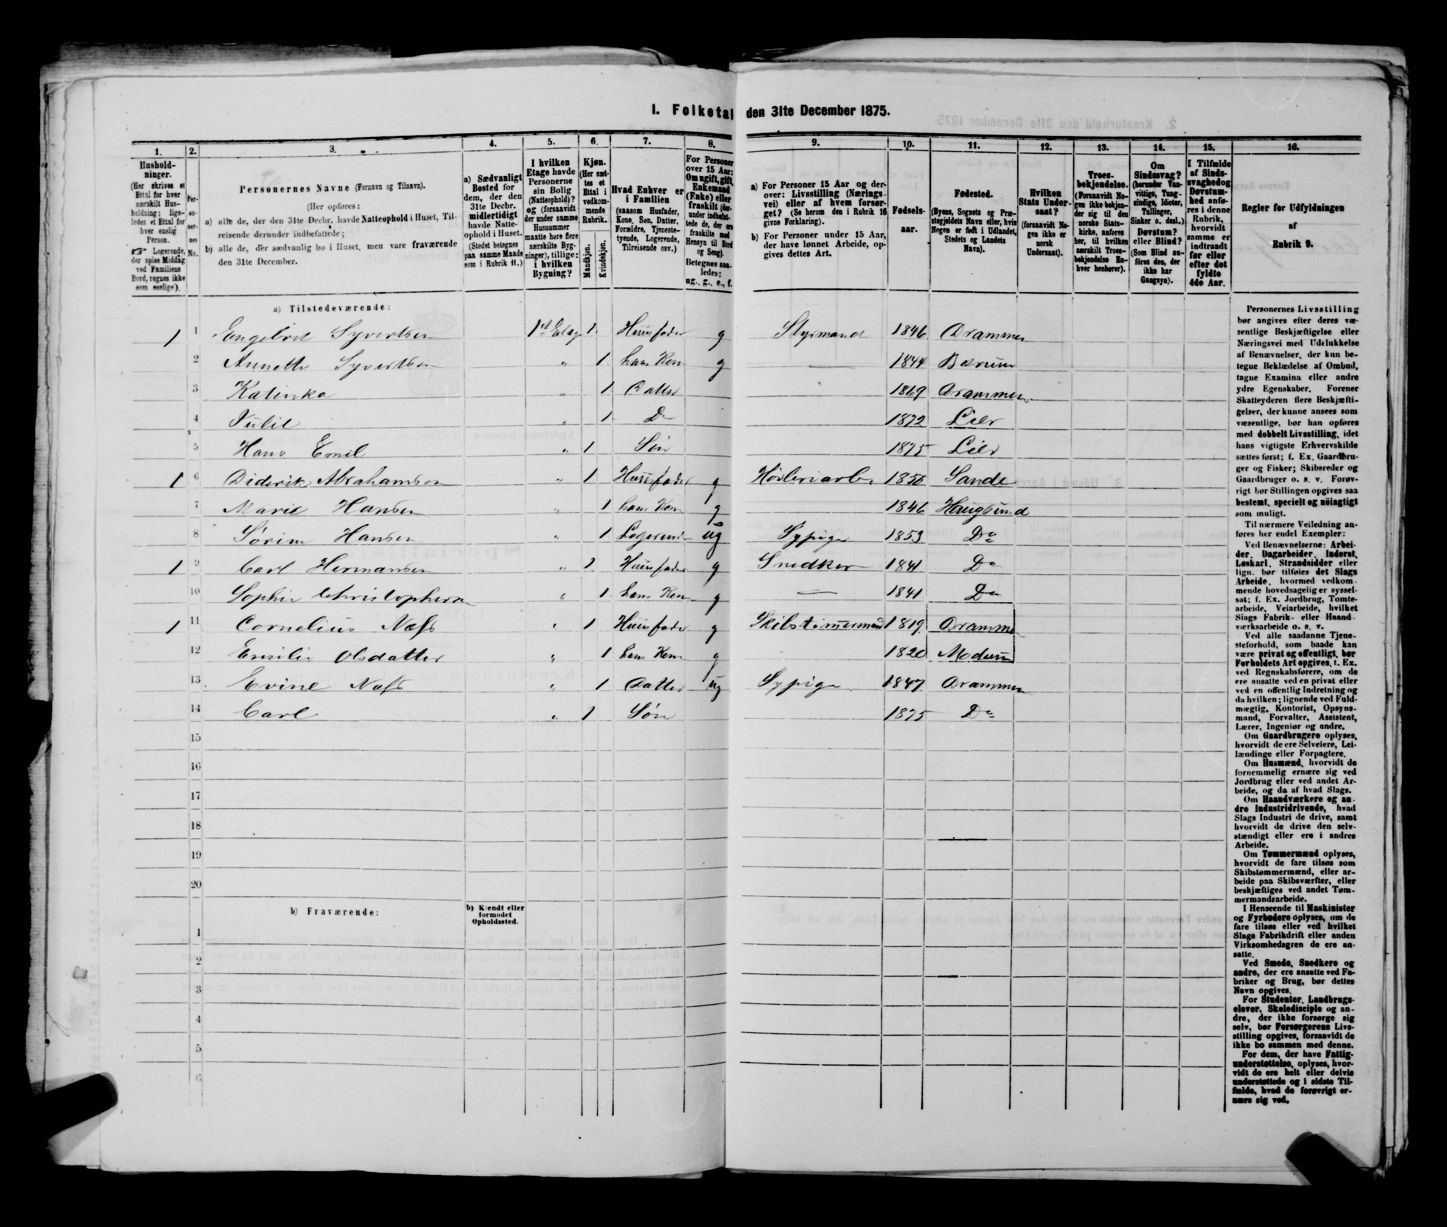 I. Folketal den 31te December 1875.
1. 2. 3. 4. 5. 6. 7. 8. 9. 10. 11. 12. 13. 14. 15. 16.
Husholdninger.
(Her skrives et Ettal for hver særskilt Husholdning; ligeledes et Ettal for hver enslig Person.
☞ Logerende, der spise Middag ved Familiens Bord, regnes ikke som enslige).
Personernes No.
Personernes Navne (Fornavn og Tilnavn).
(Her opføres:
a) alle de, der den 31te Decbr. havde Natteophold i Huset, Tilreisende derunder indbefattede;
b) alle de, der sædvanlig bo i Huset, men vare fraværende den 31te December.
a) Sædvanligt Bosted for dem, der den 31te Decbr. midlertidigt havde Natteophold i Huset.
(Stedet betegnes paa samme Maade som i Rubrik 11.)
I hvilken Etage havde Personerne sin Bolig (Natteophold)? og (forsaavidt under samme Husnummer maatte høre flere særskilte Bygninger), tillige: i hvilken Bygning?
Kjøn.
(Her sættes et Ettal i vedkommende Rubrik.
Mandkjøn.
Kvindekjøn.
Hvad Enhver er i Familien
(saasom Husfader, Kone, Søn, Datter, Forældre, Tjenestetyende, Logerende, Tilreisende osv.)
For Personer over 15 Aar: Om ugift, gift, Enkemand (Enke) eller fraskilt
Betegnes saaledes: ug., g., e., f.
a) For Personer 15 Aar og derover: Livsstilling (Næringsvei) eller af hvem forsørget? (Se herom den i Rubrik 16 givne Forklaring).
b) For Personer under 15 Aar, der have lønnet Arbeide, opgives dettes Art.
Fødselsaar.
Fødested.
(Byens, Sognets og Præstegjeldets Navn eller, hvis Nogen er født i Udlandet, Stedets og Landets Navn).
Hvilken Stats Undersaat?
(Forsaavidt Nogen ikke er norsk Undersaat).
Troesbekjendelse.
(Forsaavidt Nogen ikke bekjender sig til den norske Statskirke, anføres her, til hvilken særskilt Troesbekjendelse Enhver henhører).
Om Sindssvag? (herunder Vanvittige, Tungsindige, Idioter, Tullinger, Sinker o. desl.) Døvstum? eller Blind? (Som Blind anføres den, der ikke har Gangsyn).
I Tilfælde af Sindssvaghed og Døvstumhed anføres i denne Rubrik, hvorvidt samme er indtraadt før eller efter det fyldte 4de Aar.
Regler for Udfyldningen af Rubrik 9.
a) Tilstedeværende:
1 1 Engebret Syvertsen 1st Etag 1 Huusfader g Styrmand 1846 Drammen
2 Annette Syvertsen " 1 hans Kone g — 1844 Bærum
3 Katinka " 1 Datter 1869 Drammen
4 Julie " 1 Do 1872 Lier
5 Hans Emil " 1 Søn 1875 Lier
1 6 Diderik Abrahamsen " 1 Huusfader g Høvleriarb. 1850 Sande
7 Marie Hansen 1 hans Kone g 1846 Haugsund
8 Sørine Hansen 1 Logerende ug Sypige 1853 Do
1 9 Carl Hermansen " 1 Huusfader g Snedker 1841 Do
10 Sophie Christophersen " 1 hans Kone g — 1841 Do
1 11 Cornelius Næss " 1 Huusfader g Skibstømmermand 1819 Drammen
12 Emilie Olsdatter " 1 hans Kone g 1820 Modum
13 Evine Næss " 1 Datter ug Sypige 1847 Drammen
14 Carl " 1 Søn 1875 Do
15
16
17
18
19
20
b) Fraværende:
b) Kjendt eller formodet Opholdssted.
1
2
3
4
5
6
Personernes Livsstilling bør angives efter deres væsentlige Beskjæftigelse eller Næringsvei med Udelukkelse af Benævnelser, der kun betegne Beklædelse af Ombud, tagne Examina eller andre ydre Egenskaber. Forener Skatteyderen flere Beskjæftigelser, der kunne ansees som væsentlige, bør han opføres med dobbelt Livsstilling, idet hans vigtigste Erhvervskilde sættes først; f. Ex. Gaardbruger og Fisker; Skibsreder og Gaardbruger o. s. v. Forøvrigt bør Stillingen opgives saa bestemt, specielt og nøiagtigt som muligt.
Til nærmere Veiledning anføres her endel Exempler:
Ved Benævnelserne: Arbeider, Dagarbeider, Inderst, Løskarl, Strandsidder eller lign. bør tilføies det Slags Arbeide, hvormed vedkommende hovedsagelig er sysselsat; f. Ex. Jordbrug, Tomtearbeide, Veiarbeide, hvilket Slags Fabrik- eller Haandværksarbeide o. s. v.
Ved alle saadanne Tjenesteforhold, som baade kan være privat og offentligt, bør Forholdets Art opgives, t. Ex. ved Regnskabsførere, om de ere ansatte ved en privat eller ved en offentlig Indretning og da hvilken; lignende ved Fuldmægtig, Kontorist, Opsynsmand, Forvalter, Assistent, Lærer, Ingeniør og andre.
Om Gaardbrugere oplyses, hvorvidt de ere Selveiere, Leilændinge eller Forpagtere.
Om Husmænd, hvorvidt de fornemmelig ernære sig ved Jordbrug eller ved andet Arbeide, og da af hvad Slags.
Om Haandværkere og andre Industridrivende, hvad Slags Industri de drive, samt hvorvidt de drive den selvstændigt eller ere i andres Arbeide.
Om Tømmermænd oplyses, hvorvidt de fare tilsøs som Skibstømmermænd, eller arbeide paa Skibsværfter, eller beskjæftiges ved andet Tømmermandsarbeide.
I Henseende til Maskinister og Fyrbødere oplyses, om de fare tilsøs eller ved hvilket Slags Fabrikdrift eller anden Virksomhedsgren de ere ansatte.
Ved Smede, Snedkere og andre, der ere ansatte ved Fabriker og Brug, bør dettes Navn opgives.
For Studenter, Landbrugselever, Skoledisciple og andre, der ikke forsørge sig selv, bør Forsørgerens Livsstilling opgives, forsaavidt de ikke bo sammen med denne.
For dem, der have Fattigunderstøttelse, oplyses, hvorvidt de ere helt eller delvis understøttede og i sidste Tilfælde, hvad de forøvrigt ernære sig ved.